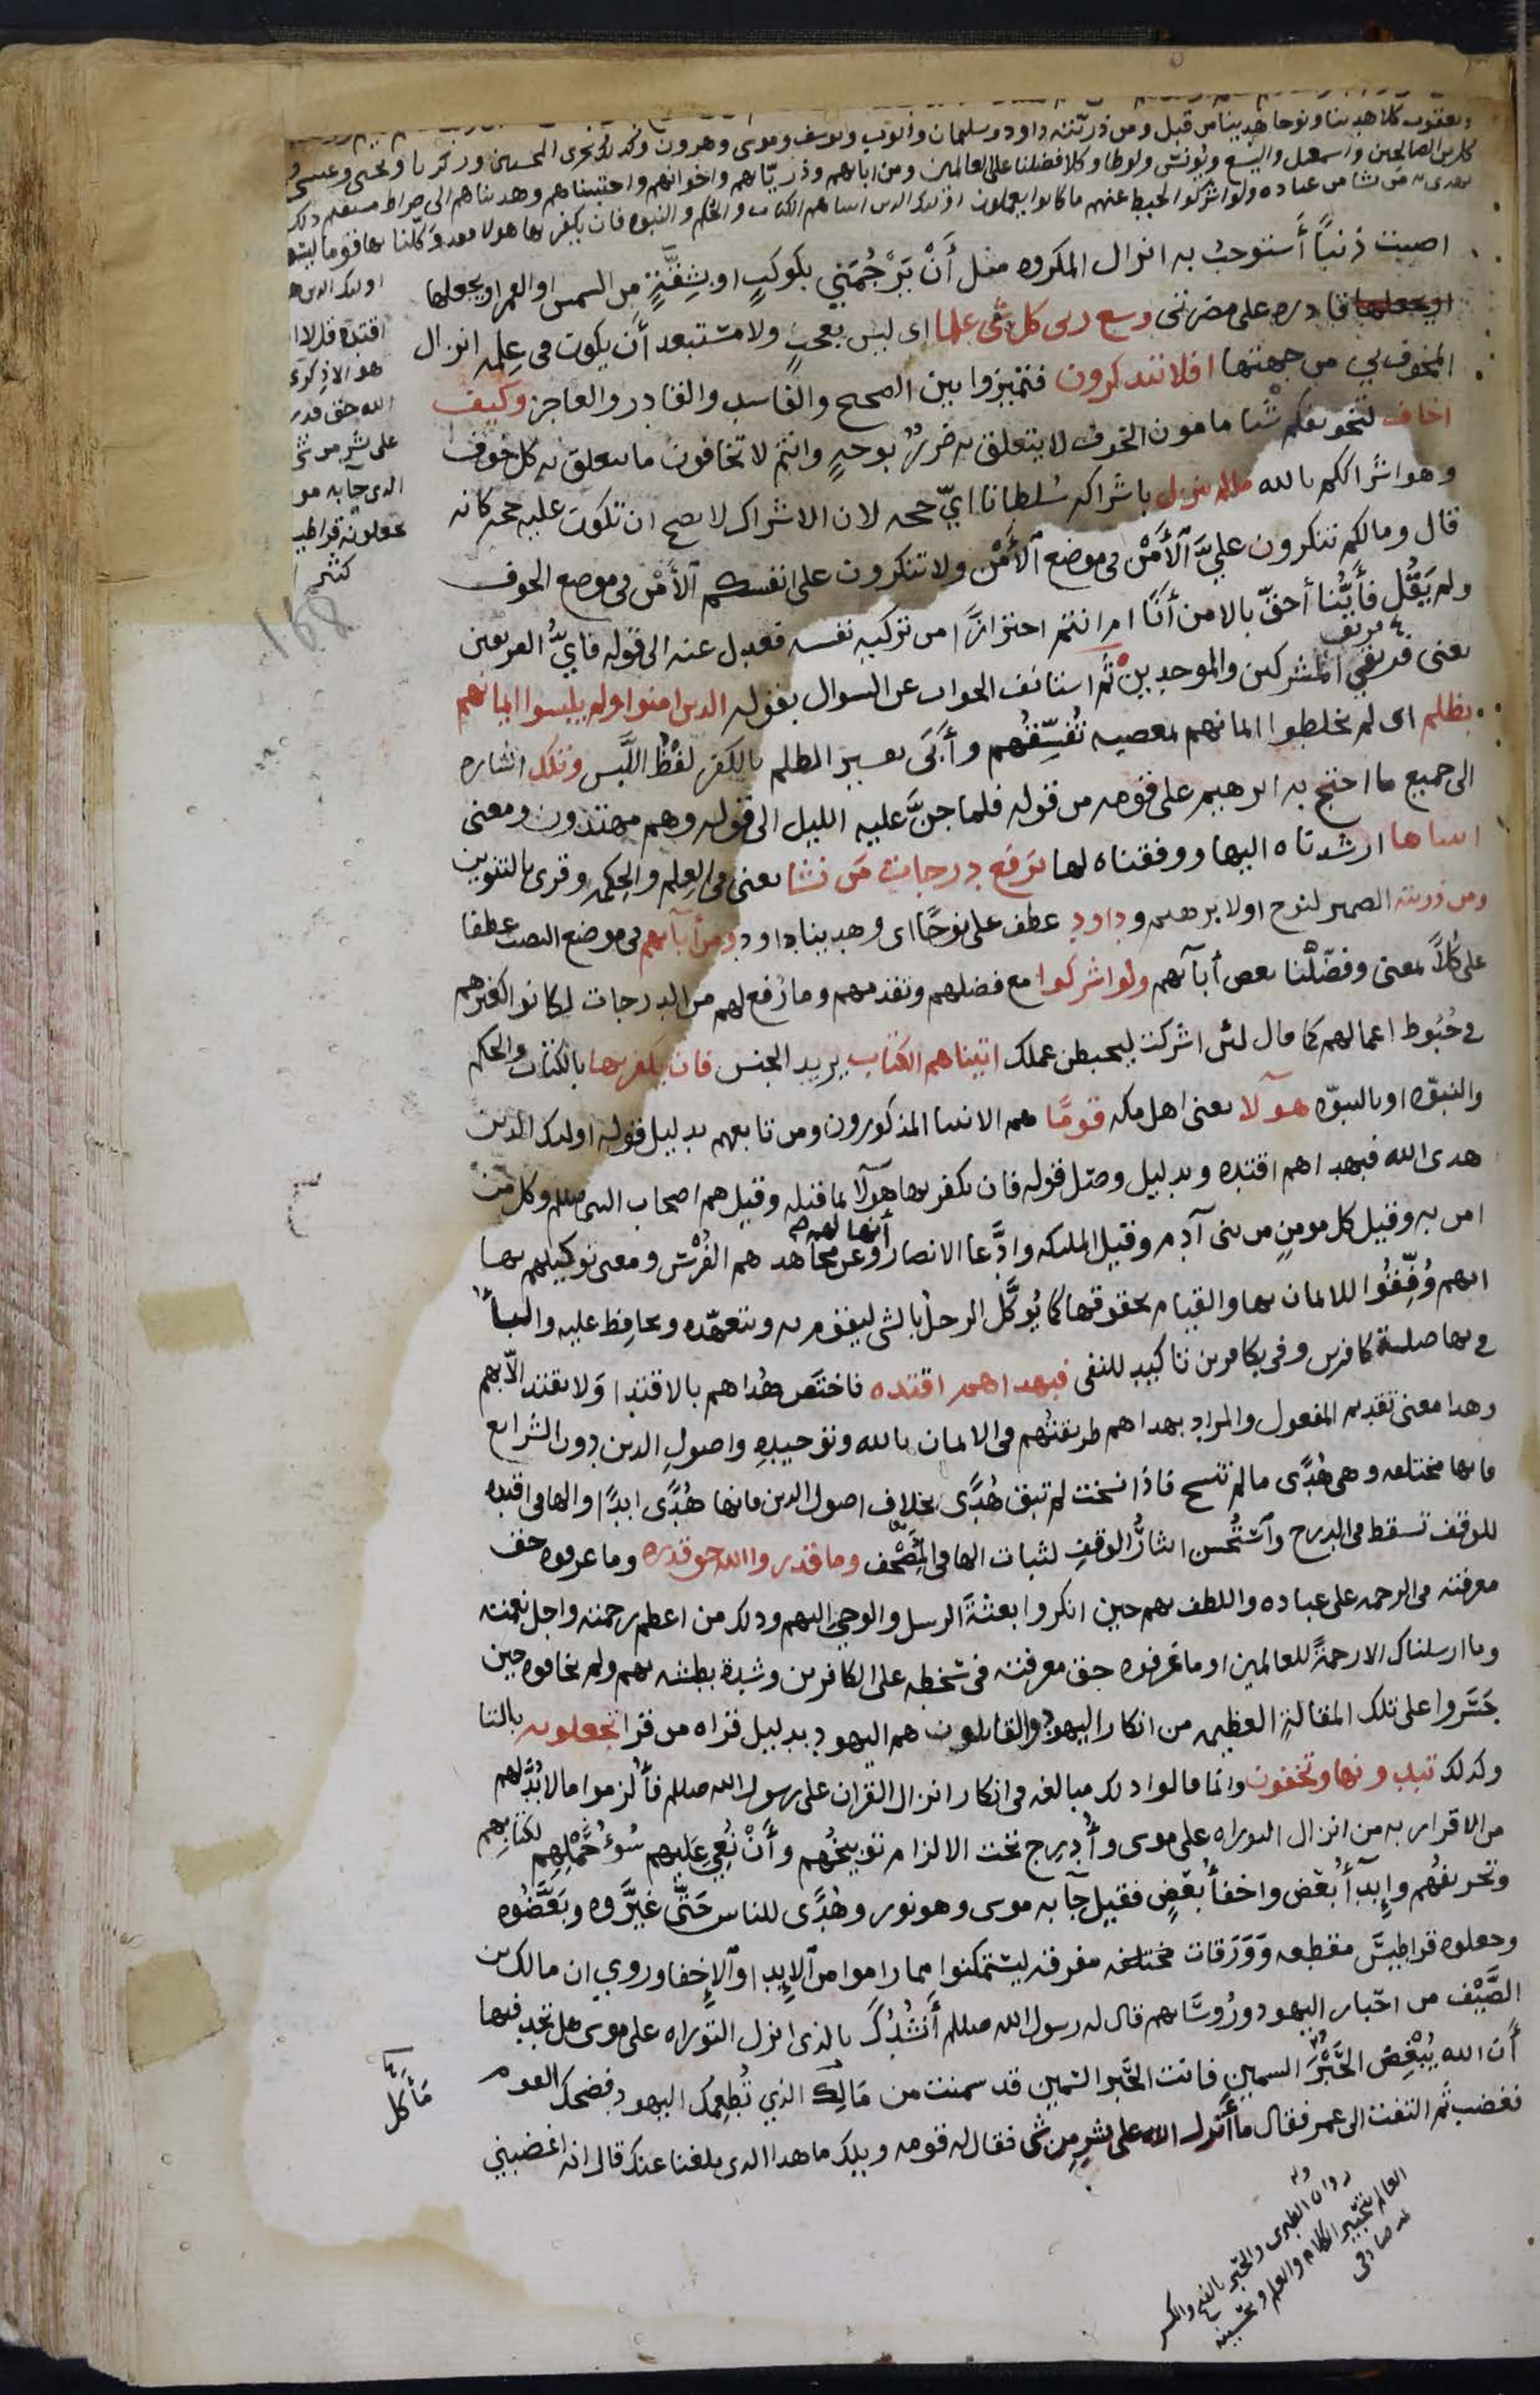 ويعقوب كلا هدينا ونوحا هدينا من قبل ومن ذريته داود وسليمان وايوب ويوسف وموسى وهرون وكذلك نجزى المحسنين وزكريا ويحيى وعيسى و
كل من الصالحين واسمعيل واليسع ويونس ولوطا وكلا فضلنا على العالمين ومن اباىهم وذرياتهم واخوانهم واجتبيناهم وهديناهم الى صراط مستقيم ذلك
يهدى به من يشا من عباده ولو اشركوا لحبط عنهم ما كانوا يعملون اولىك الدين اتيناهم الكتاب والحكم والنبوه فان يكفر بها هولا فقد وكلنا بها قوما ليسو
اولىك الدين ه
اقتده قل لا ا
هو الا ذكرى
الله حق قدر
على بشر من شى
الدى جا به مو
تجعلونه قراطيـ
كثير ا
168
اصبت ذنبًا أستوجبُ به انزال المكروه مثل أَنْ يَرْجُمَني بكوكبٍ او بشِقّةٍ من السمس او القمر او يجعلها
قادره على مضرتى وسع ربى كل شى علما اى ليس بعجبٍ ولا مستبعد أن يكون فى عِلمِه انزال
المخوف بي من جهتها افلا تتذكرون فتميزوا بين الصحيح والفاسد والقادر والعاجز وكيف
اخاف لتخويفكم شيا مامون الخوف لا يتعلق به ضررٌ بوجهٍ وانتم لا تخافون ما يتعلق به كل مخوف
وهو اشراككم بالله ما لم ينزل باشراكه سُلطانا ايّ حجه لان الاشراك لا يصح ان تكون عليه حجه كانه
قال وما لكم تنكرون عليّ الأَمْنَ فى موضع الأَمْنِ ولا تنكرون على انفسكم الأَمْنَ فى موضع الخوف
ولم يَقُل فأَيُّنا أحقّ بالامن أَنَا ام انتم احترازًا من تزكيه نفسه فعدل عنه الى قوله فايُّ الفريقين
يعنى فريقي المشركين والموحدين ثُم استانف الجواب عن السوال بقوله الدين امنوا ولم يلبسوا ايمانهم
بظلم اى لم يخلطوا ايمانهم بمعصيه تُفسِّقُهم وأَبَى تفسير الظلم بالكفر لفظُ اللَّبس وتلك اشاره
الى جميع ما احتج به ابرهيم على قومه من قوله فلما جنَّ عليه الليل الى قوله وهم مهتدون ومعنى
اتيناها ارشدناه اليها ووفقناه لها نرفع درجات من نشا يعنى فى العِلم والحِكمه وقرى بالتنوين
ومن ذريته الضمير لنوح او لابرهيم وداود عطف على نوحًا اى وهدينا داود ومن أبآىهم فى موضع النصب عطفا
على كُلاًّ بمعنى وفضّلنا بعض أبآىهم ولو اشركوا مع فضلهم وتقدمهم وما رُفع لهم من الدرجات لكانوا كغيرهم
في حُبُوط اعمالهم كما قال لئن اشركت ليحبطن عملك اتيناهم الكتاب يريد الجنس فان يكفر بها بالكتاب والحكم
والنبوّه او بالنبوّه هولا يعنى اهل مكه قومًا هم الانبيا المذكورون ومن تابعهم بدليل قوله اولىك الدين
هدى الله فبهداهم اقتده وبدليل وصل قوله فان يكفر بها هولا بما قبله وقيل هم اصحاب النبى صلىلم وكل من
امن به وقيل كل مومن من بنى آدم وقيل الملىكه وادَّعا الانصار أنها لهم وعن مجاهد هم الفُرْسُ ومعنى توكيلهم بها
انهم وُفِّقُوا للايمان بها والقيام بحقوقها كما يُوكَّل الرجلُ بالشى ليقوم به ويتعهّده ويحافظ عليه والبا
في بها صلة كافرين وفى بكافرين تاكيد للنفى فبهداهم اقتده فاختص هُداهم بالاقتدا ولا يقتدا الّا بهم
وهذا معنى تقديم المفعول والمراد بهداهم طريقتُهم فى الايمان بالله وتوحيدِه واصولِ الدين دون الشرايع
فانها مختلفه وهى هُدًى ما لم تنسخ فاذا نسخت لم تبق هُدًى بخلاف اصول الدين فانها هُدًى ابدًا والها فى اقتده
للوقف تسقط فى الدرج واستُحسن ايثارُ الوقفِ لثبات الها فى المُصحف وما قدروا الله حق قدره وما عرفوه حق
معرفته فى الرحمه على عباده واللطف بهم حين انكروا بعثةَ الرسل والوحي اليهم وذلك من اعظم رحمته واجل نعمته
وما ارسلناك الا رحمةً للعالمين او ما عرفوه حق معرفته فى سُخطه على الكافرين وشدة بطشه بهم ولم يخافوه حين
جَسَروا على تلك المقالةِ العظيمه من انكار اليهود والقايلون هم اليهود بدليل قراه من قرا تجعلونه بالتا
وكذلك تبدونها وتخفون وانما قالوا ذلك مبالغه فى انكار انزال القران على رسول الله صلىلم فأُلزموا ما لا بُدَّ لهم
من الاقرار به من انزال التوراه على موسى وأُدرِج تحت الالزام توبيخُهم وأَنْ نُعِيَ عليهم سُوءُ حَمْلِهِم لكتابهم
وتحريفُهم وإِبدآ بَعْضٍ واخفا بَعْضٍ فقيل جآ به موسى وهو نور وهُدًى للناس حَتَّى غيَّروه وبَعَّضُوه
وجعلوه قراطيسَ مقطعه وَوَرَقات مختلفه مفرقه ليتمكنوا مما راموا من الإبدا والإخفا وروي ان مالك بن
الصَّيْف من احبار اليهود ورُوسَاىهم قال له رسول الله صلىلم أَنشُدُكَ بالذى انزل التوراه على موسى هل تجد فيها
أن الله يُبْغِضُ الحَبْرَ السمين فانت الحَبر السّمين قد سمنت من مَالِكَ الذي تُطعِمُك اليهود فضحك القوم
فغضب ثم التفت الى عمر فقال ما أنزل الله على بشرٍ من شى فقال له قومه ويلك ما هدا الدى بلغنا عنك قال انه اغضبني
مَأكَل